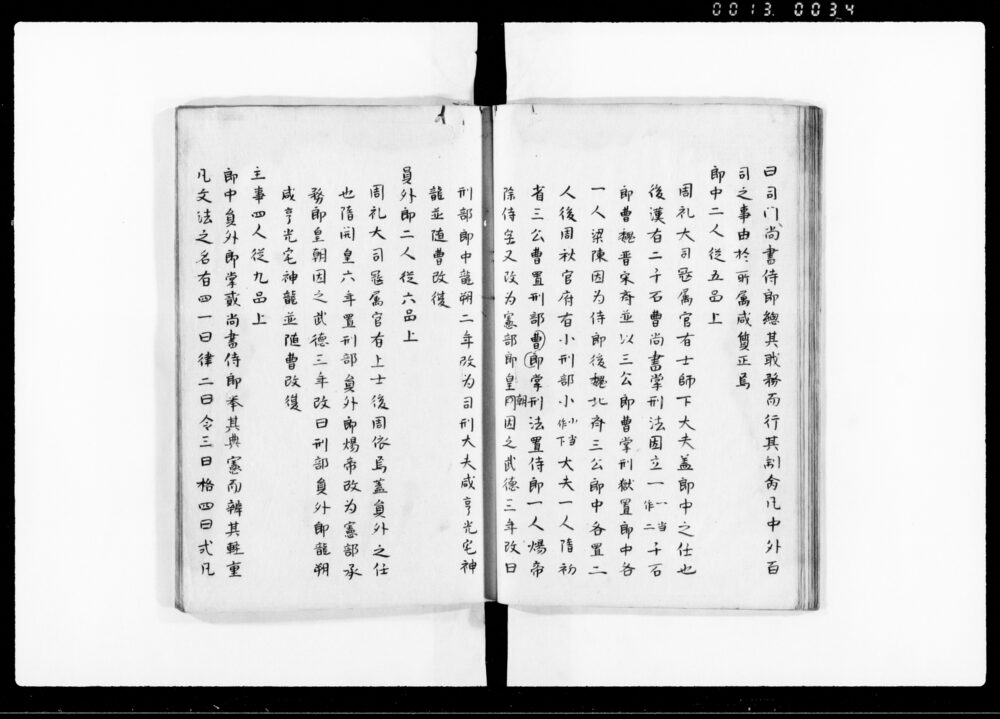 0013 0034
曰司門尚書侍郎總其職務而行其制命凡中外百
司之事由於所属咸質正焉
郎中二人從五品上
周礼大司寇属官有士師下大夫蓋郎中之仕也
後漢有二千石曹尚書掌刑法因立一一当作二千石
郎曹魏晋宋斉並以三公郎曹掌刑獄置郎中各
一人梁陳因为侍郎後魏北斉三公郎中各置二
人後周秋官府有小刑部小小当作下大夫一人隋初
省三公曹置刑部曹郎掌刑法置侍郎一人煬帝
除侍字又改为憲部郎皇朝因之武德三年改曰
刑部郎中龍朔二年改为司刑大夫咸亨光宅神
龍並随曹改復
員外郎二人從六品上
周礼大司寇属官有上士後周依焉蓋負外之仕
也隋開皇六年置刑部負外郎煬帝改为憲部承
務郎皇朝因之武德三年改曰刑部負外郎龍朔
咸亨光宅神龍並随曹改復
主事四人從九品上
郎中負外郎掌貳尚書侍郎奉其典憲而辨其軽重
凡文法之名有四一曰律二曰令三曰格四曰式凡